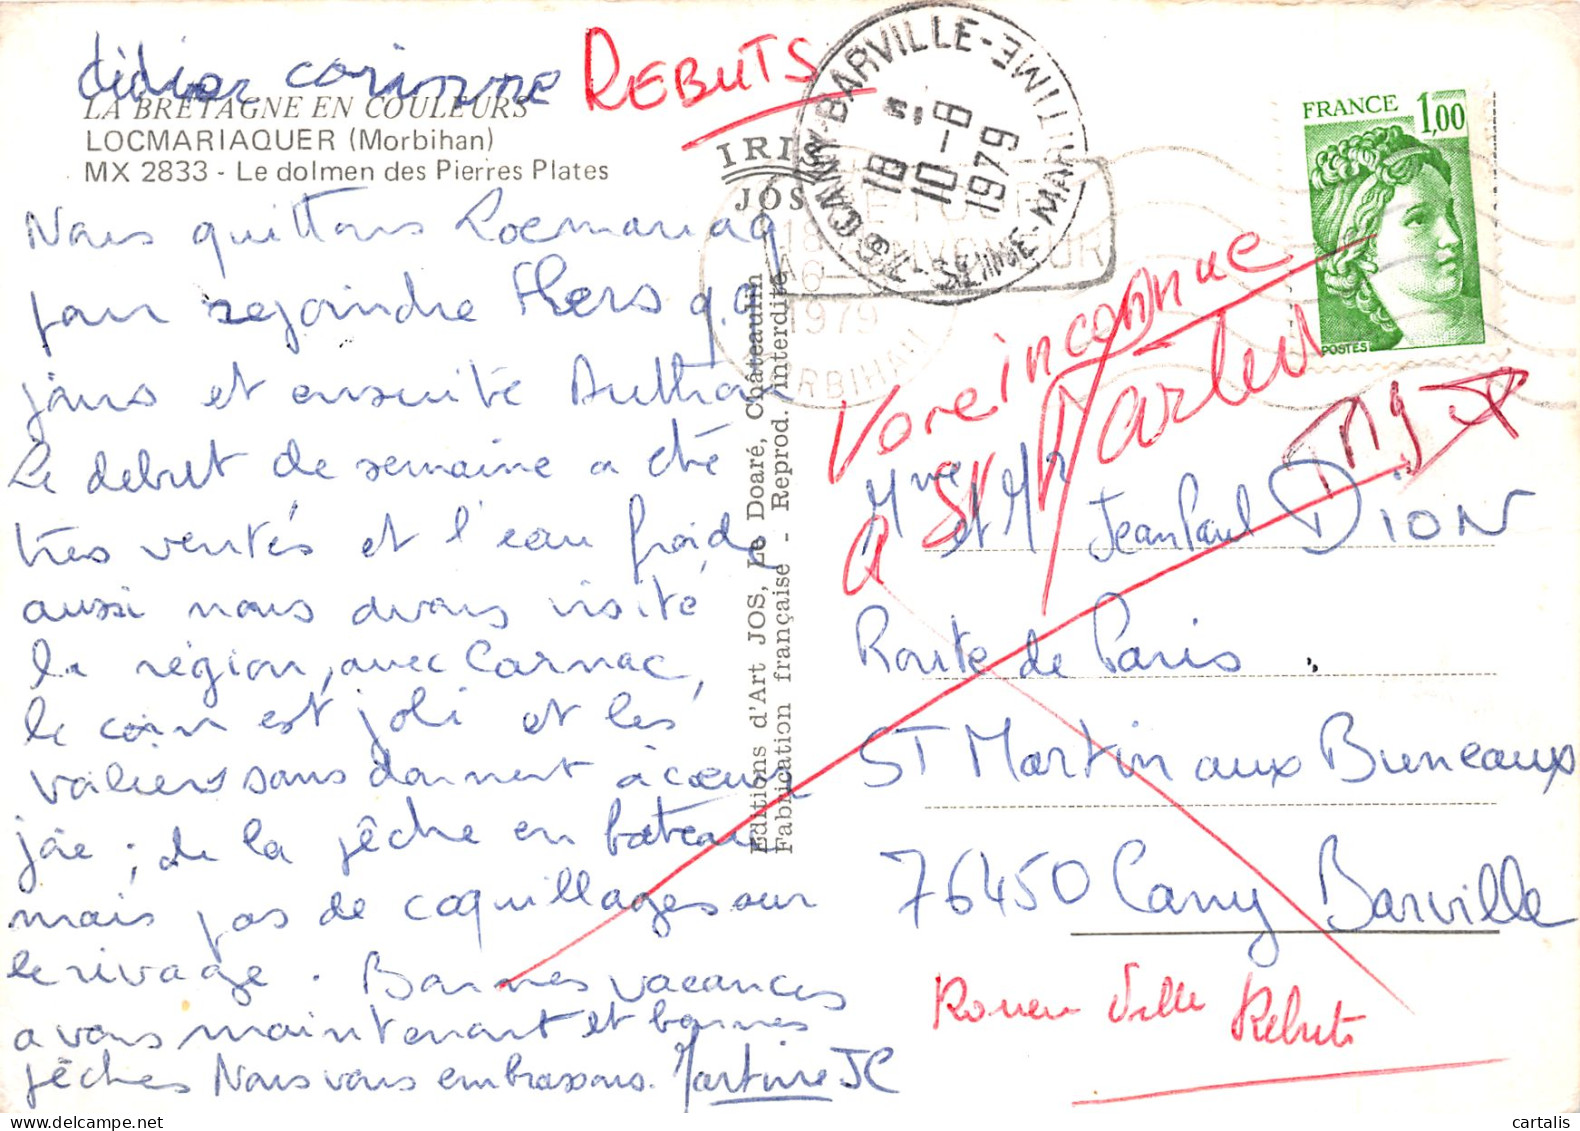 didier corinne REBUTS
LA BRETAGNE EN COULEURS
LOCMARIAQUER (Morbihan)
MX 2833 - Le dolmen des Pierres Plates
IRIS
JOS
Nous quittons Locmariaq
pour rejoindre Flers q.q
jours et ensuite
Le debut de semaine a été
tres ventés et l'eau froide
aussi nous avons visité
la région, avec Carnac,
le coin est joli et les
voiliers sans donnent à coeur
joie ; de la pêche en bateau
mais pas de coquillages sur
le rivage. Bonnes vacances
a vous maintenant et bonnes
pêches Nous vous embrassons. Martine JC
Editions d'Art JOS, Le Doaré, Châteaulin
Fabrication française - Reprod. interdite
76 CANY-BARVILLE
SEINE-MARITIME
18 H
10 - 9
1979
RETOUR
A L'ENVOYEUR
18
8
1979
MORBIHAN
FRANCE 1,00
POSTES
Voie inconnue
a St Martin
Mme et Mr Jean Paul DION
Route de Paris
ST Martin aux Buneaux
76450 Cany Barville
Rouen Ville Rebuts